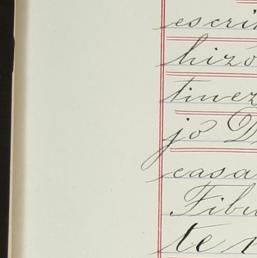 escri
hizo
tinez
jo D
casa
Tibu
te n